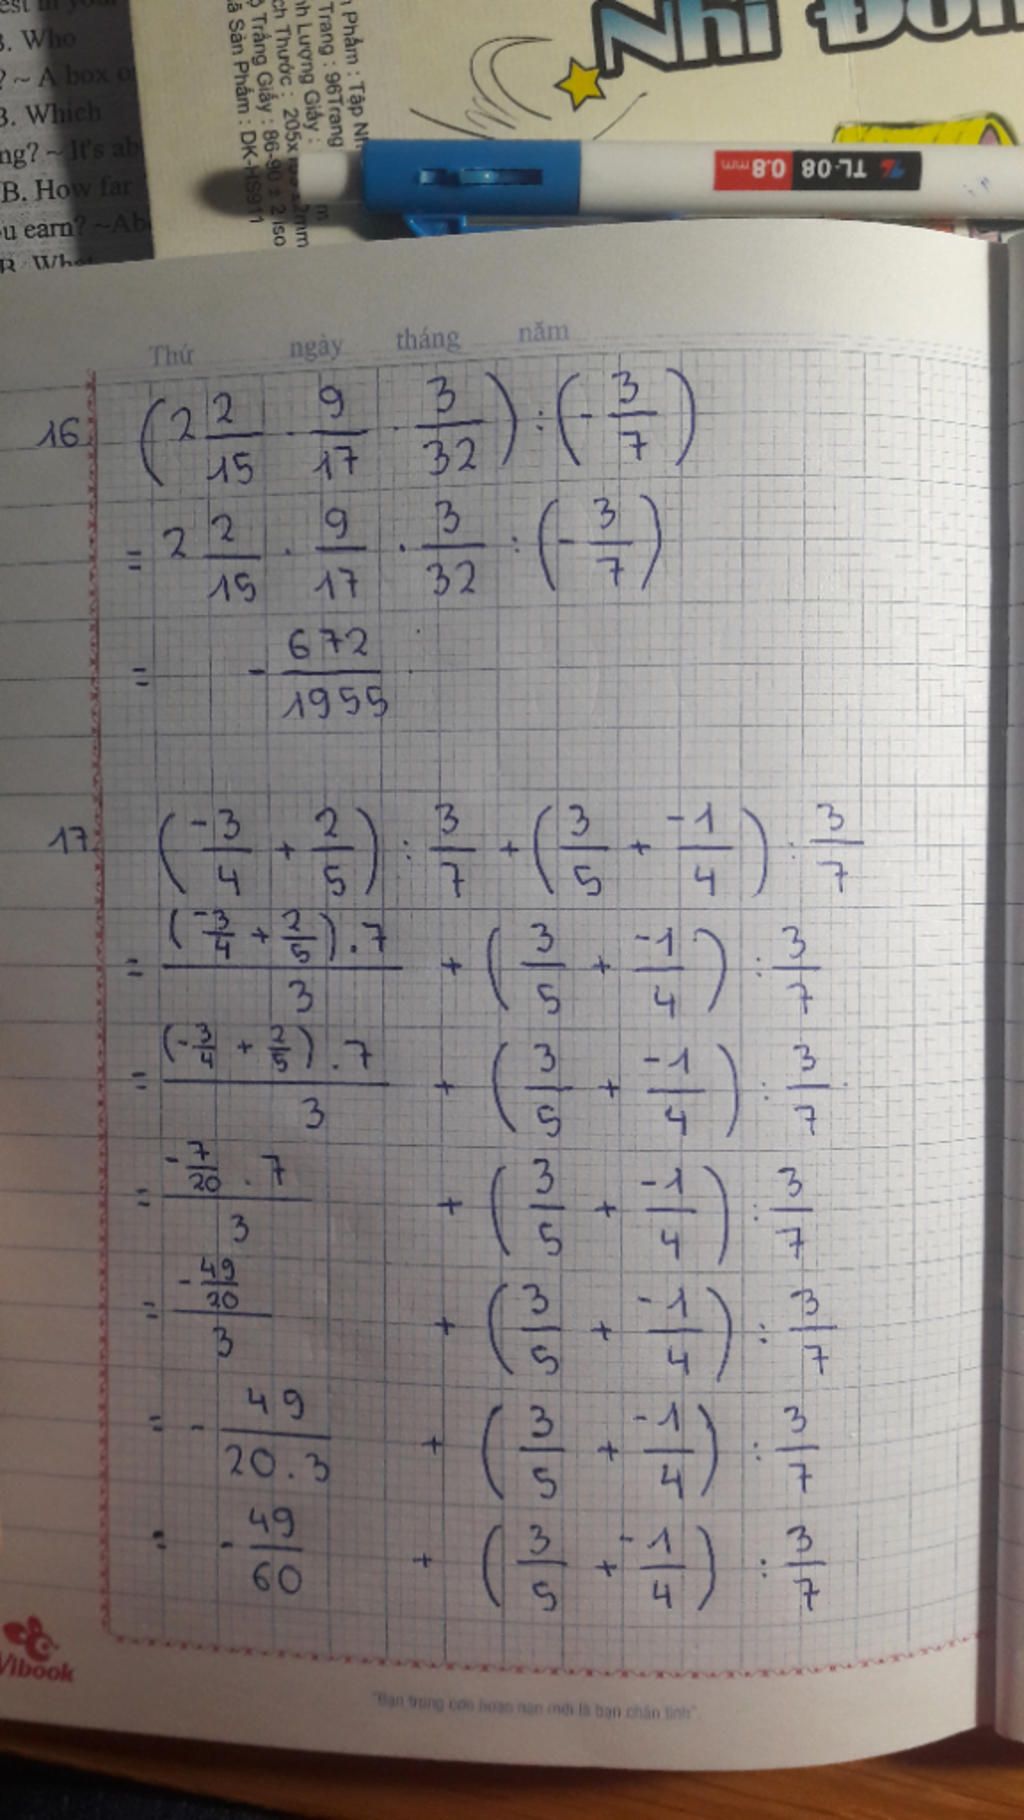 3. Who
? ~ A box
3. Which
ng? ~ It's ab
B. How far
u earn? ~Ab
Phẩm : Tập
Trang : 96Trang
Lượng Giấy :
Thước : 205x
Trắng Giấy : 86-90 ± 2 iso
Sản Phẩm : DK-HS911
2mm
Nhi Đồn
TL-08 0.8 mm
Thứ ngày tháng năm
16. (2 2/15 . 9/17 . 3/32) : (- 3/7)
= 2 2/15 . 9/17 . 3/32 : (- 3/7)
= - 672/1955
17. (-3/4 + 2/5) : 3/7 + (3/5 + -1/4) : 3/7
= ((-3/4 + 2/5) . 7)/3 + (3/5 + -1/4) : 3/7
= ((-3/4 + 2/5) . 7)/3 + (3/5 + -1/4) : 3/7
= (-7/20 . 7)/3 + (3/5 + -1/4) : 3/7
= (-49/20)/3 + (3/5 + -1/4) : 3/7
= - 49/(20.3) + (3/5 + -1/4) : 3/7
= - 49/60 + (3/5 + -1/4) : 3/7
Vibook
"Bạn trong cơn hoạn nạn mới là bạn chân tình"